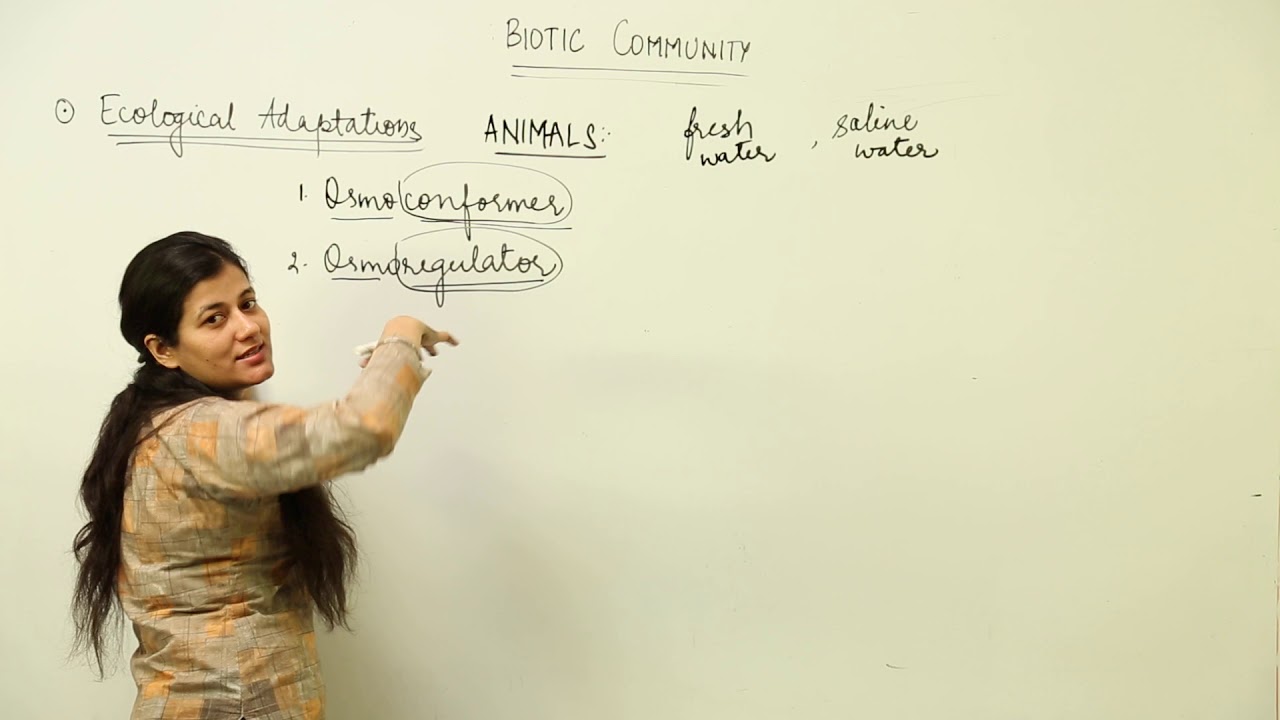 BIOTIC COMMUNITY
⊙ Ecological Adaptations ANIMALS:- fresh water, saline water
1. Osmoconformer
2. Osmoregulator